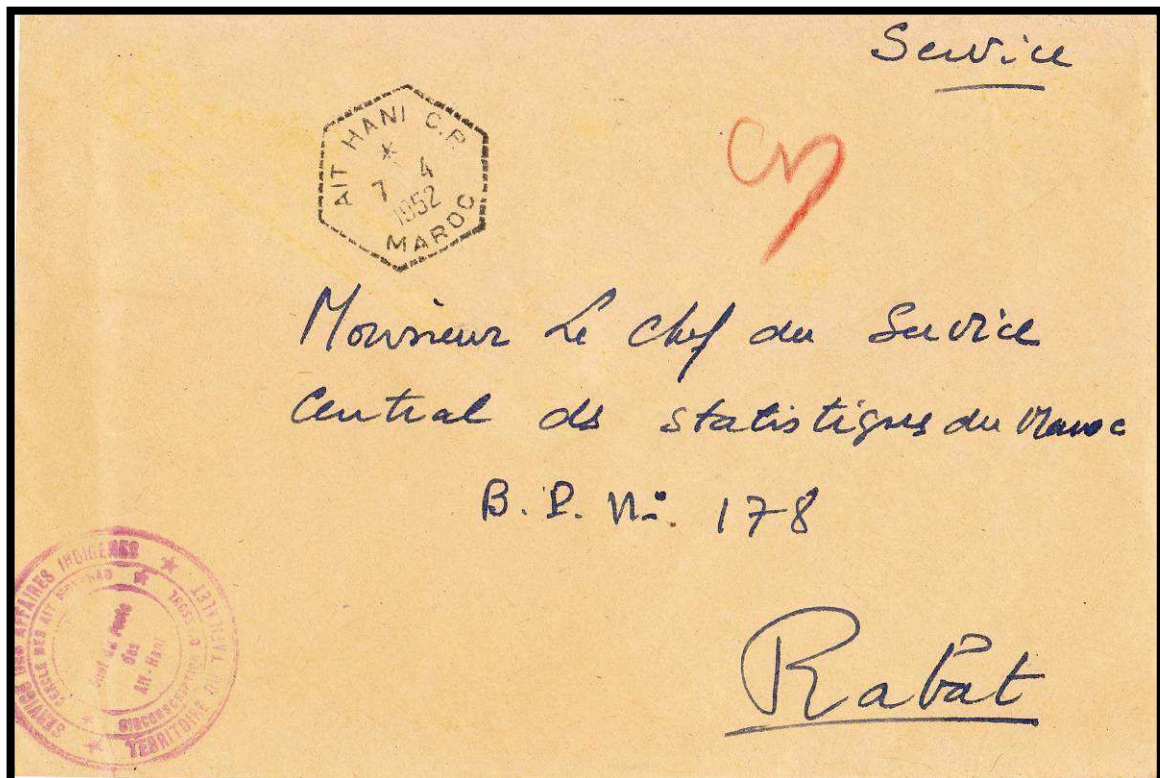 Service
AIT HANI C.P.
7 4
1952
MAROC
Monsieur Le chef du Service
Central des statistiques du Maroc
B.P. No. 178
Rabat
SERVICE DES AFFAIRES INDIGÈNES ★ TERRITOIRE DU TAFILALET ★
CERCLE DES AIT ★ CIRCONSCRIPTION D ★
des
Ait-Hani